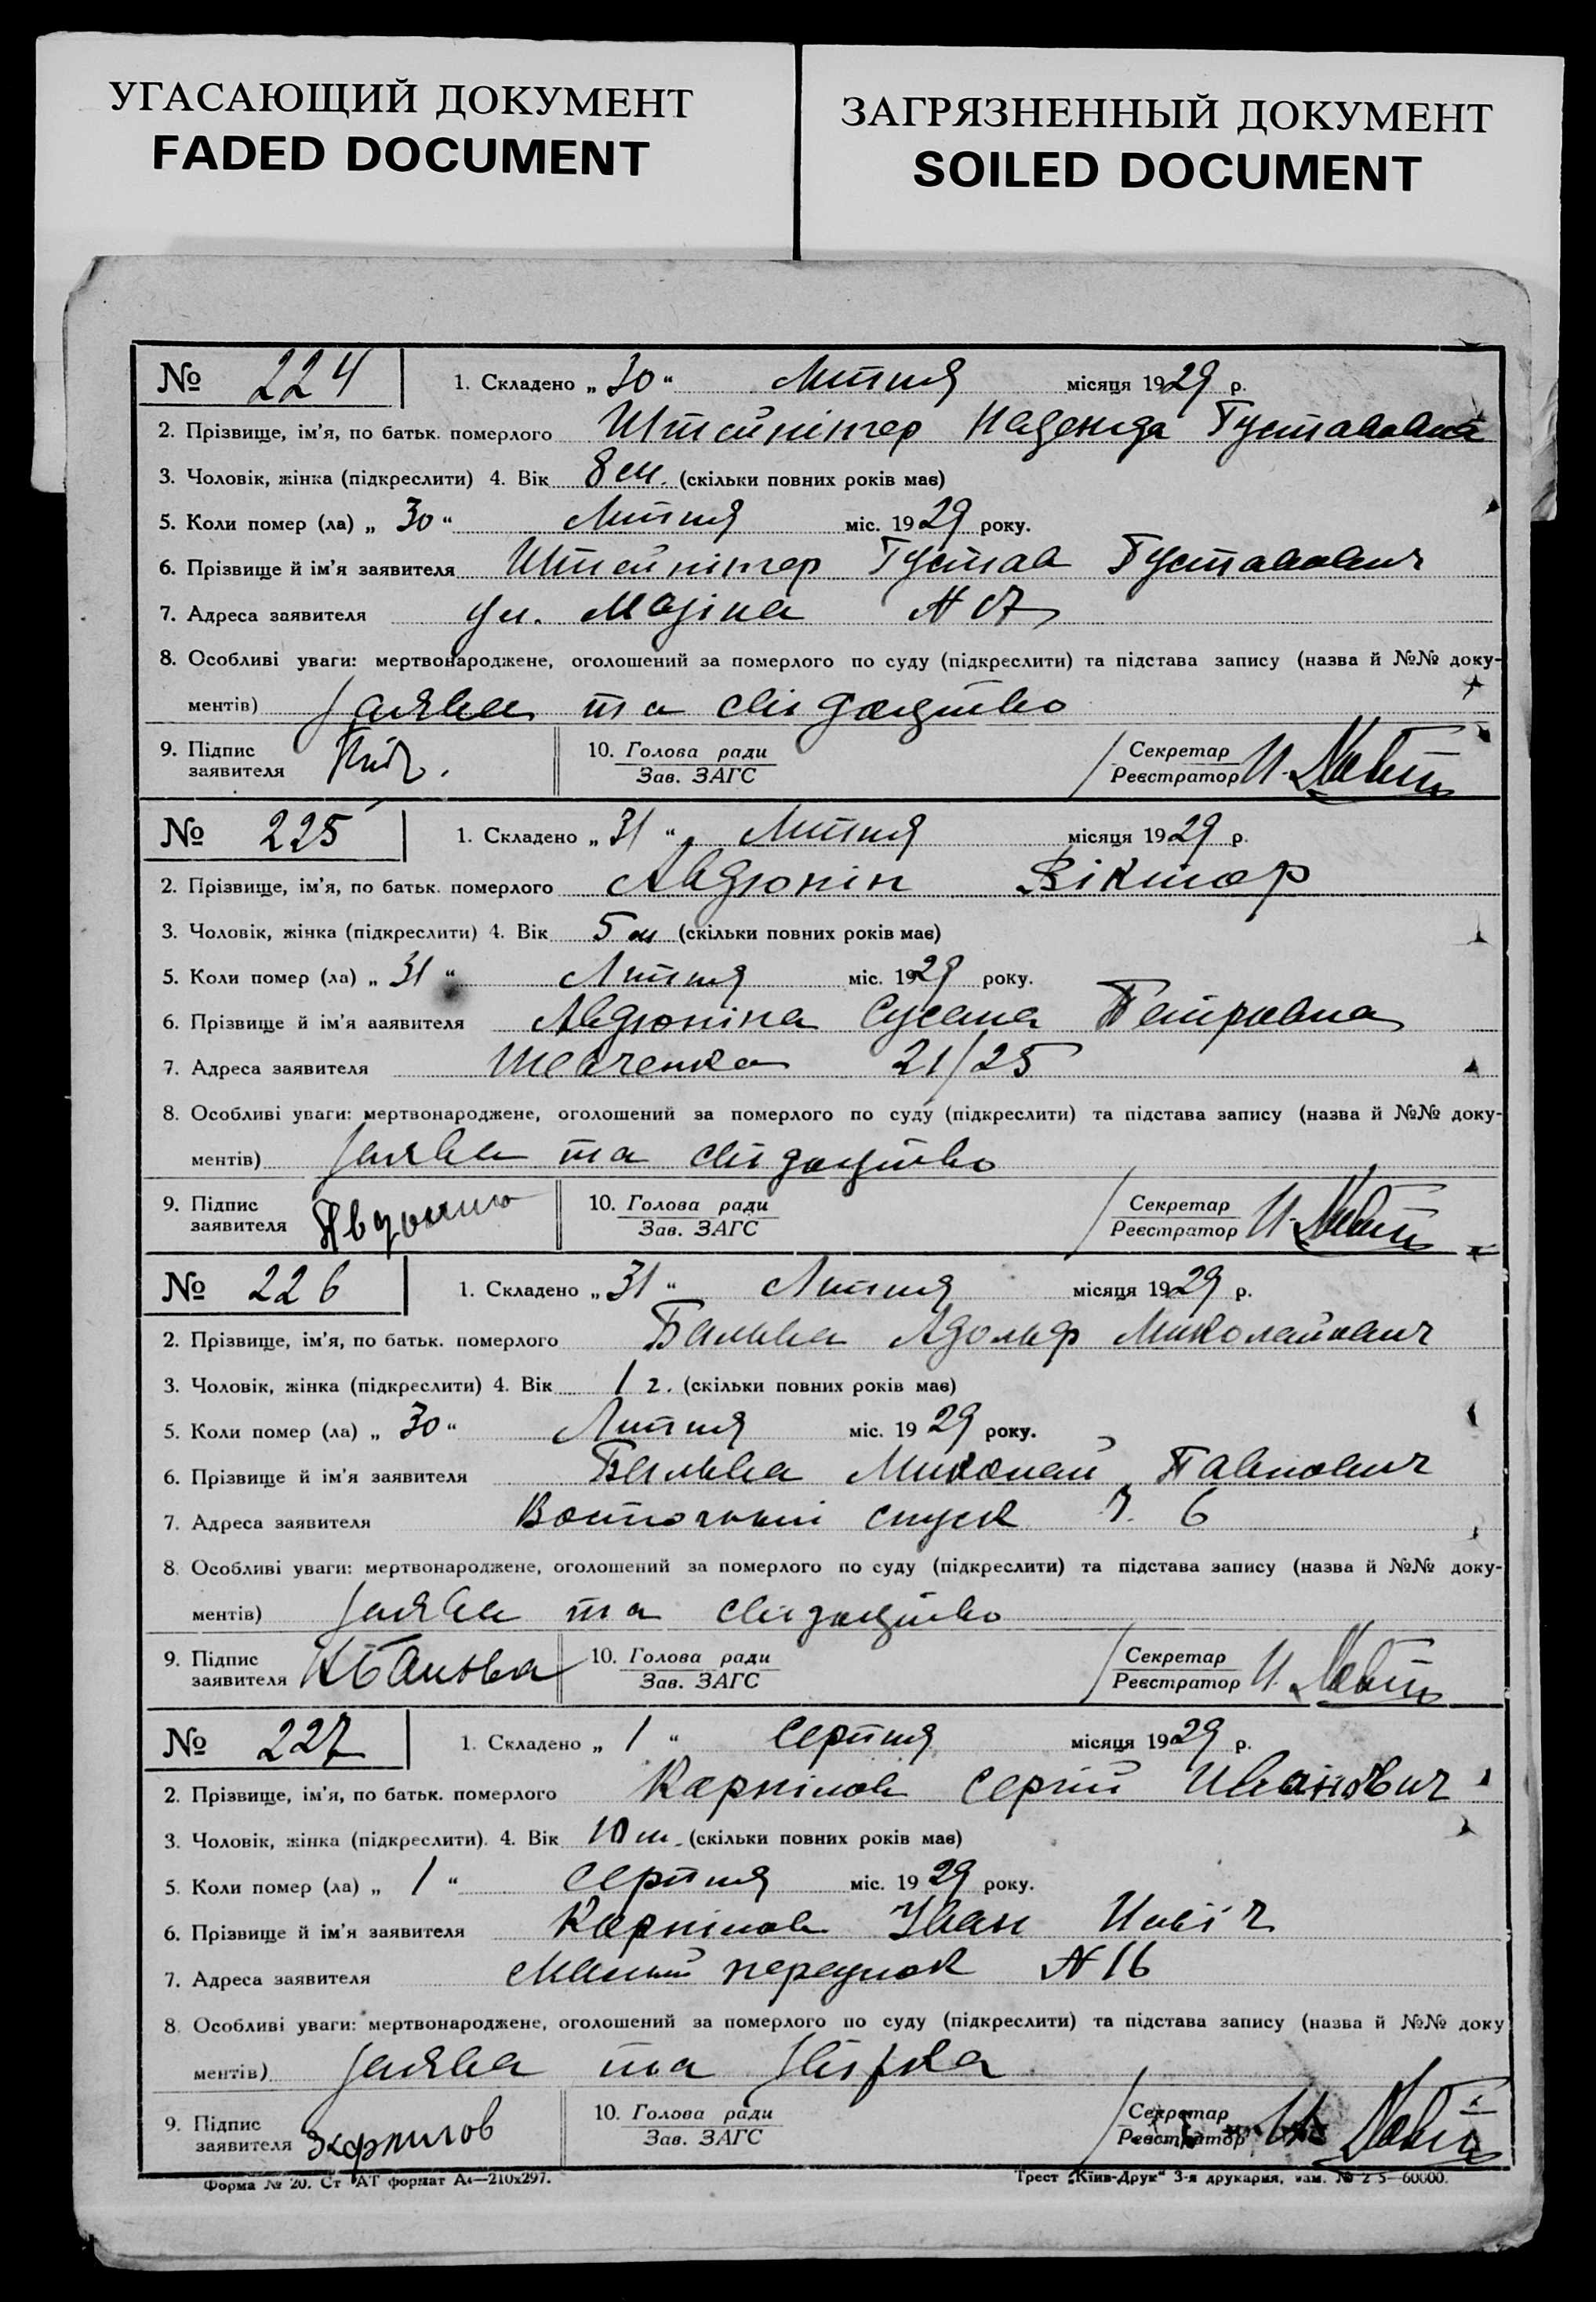 УГАСАЮЩИЙ ДОКУМЕНТ
FADED DOCUMENT
ЗАГРЯЗНЕННЫЙ ДОКУМЕНТ
SOILED DOCUMENT
№ 224 1. Складено „ 30 “ Липня місяця 1929 р.
2. Прізвище, ім'я, по батьк. померлого Штейнінгер Надежда Густавовна
3. Чоловік, жінка (підкреслити) 4. Вік 8 м. (скільки повних років має)
5. Коли помер (ла) „ 30 “ Липня міс. 1929 року.
6. Прізвище й ім'я заявителя Штейнінгер Густав Густавович
7. Адреса заявителя ул. N 17
8. Особливі уваги: мертвонароджене, оголошений за померлого по суду (підкреслити) та підстава запису (назва й №№ доку-
ментів) Заява та свідоцтво
9. Підпис
заявителя
10. Голова ради
Зав. ЗАГС
Секретар
Реєстратор
№ 225 1. Складено „ 31 “ Липня місяця 1929 р.
2. Прізвище, ім'я, по батьк. померлого Авдюнін Віктор
3. Чоловік, жінка (підкреслити) 4. Вік 5 м (скільки повних років має)
5. Коли помер (ла) „ 31 “ Липня міс. 1929 року.
6. Прізвище й ім'я заявителя Авдюніна Сусана Петровна
7. Адреса заявителя Шевченка 21/25
8. Особливі уваги: мертвонароджене, оголошений за померлого по суду (підкреслити) та підстава запису (назва й №№ доку-
ментів) Заява та свідоцтво
9. Підпис
заявителя
10. Голова ради
Зав. ЗАГС
Секретар
Реєстратор
№ 226 1. Складено „ 31 “ Липня місяця 1929 р.
2. Прізвище, ім'я, по батьк. померлого Бальва Адольф Миколайович
3. Чоловік, жінка (підкреслити) 4. Вік 1 г. (скільки повних років має)
5. Коли помер (ла) „ 30 “ Липня міс. 1929 року.
6. Прізвище й ім'я заявителя Бальва Миколай Павлович
7. Адреса заявителя Восточний спуск 6
8. Особливі уваги: мертвонароджене, оголошений за померлого по суду (підкреслити) та підстава запису (назва й №№ доку-
ментів) Заява та свідоцтво
9. Підпис
заявителя Н Бальва
10. Голова ради
Зав. ЗАГС
Секретар
Реєстратор
№ 227 1. Складено „ 1 “ Серпня місяця 1929 р.
2. Прізвище, ім'я, по батьк. померлого Карпілов Сергій Иванович
3. Чоловік, жінка (підкреслити). 4. Вік 10 м. (скільки повних років має)
5. Коли помер (ла) „ 1 “ Серпня міс. 1929 року.
6. Прізвище й ім'я заявителя Карпілов Іван
7. Адреса заявителя Малий переулок N 16
8. Особливі уваги: мертвонароджене, оголошений за померлого по суду (підкреслити) та підстава запису (назва й №№ доку
ментів) Заява та
9. Підпис
заявителя
10. Голова ради
Зав. ЗАГС
Секретар
Реєстратор
Форма № 20. Ст АТ формат А4—210х297.
Трест „Київ-Друк“ 3-я друкарня, зам. 60000.